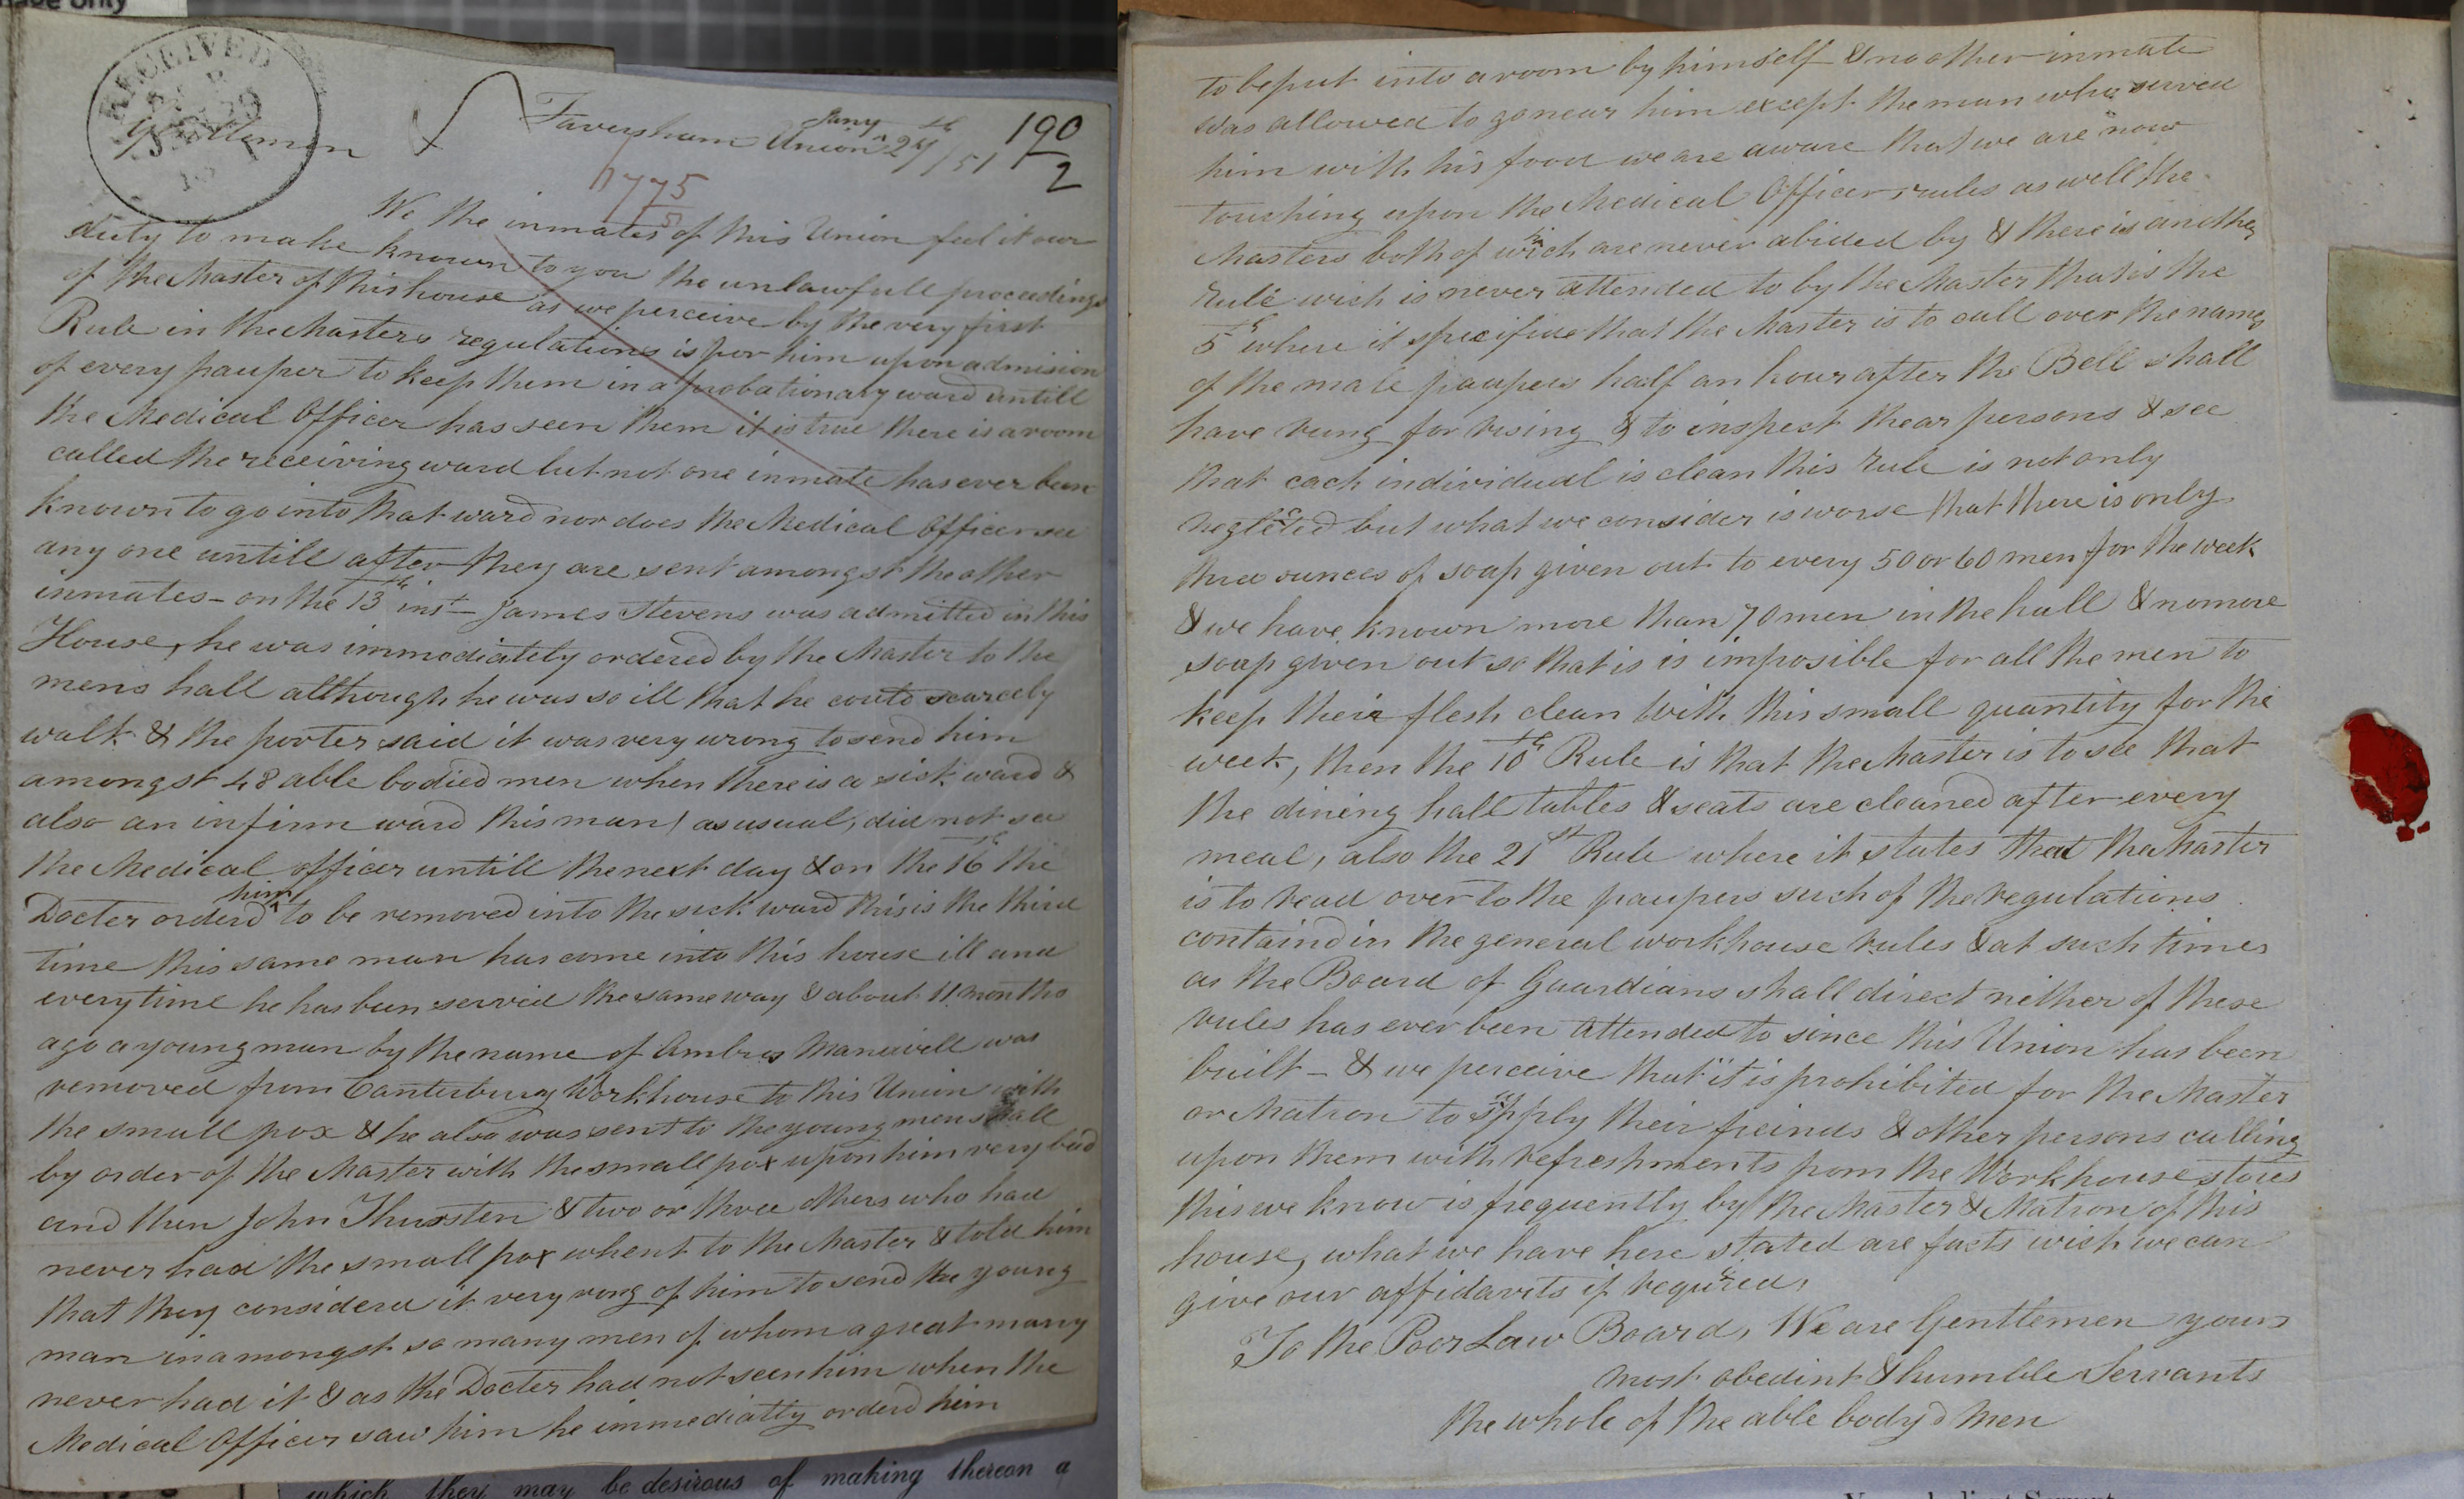 RECEIVED
Gentlemen
Faversham Union Jany 27th/51
190
2
1775
51
We the inmates of this Union feel it our
duty to make known to you the unlawfull proceedings
of the Master of this house as we perceive by the very first
Rule in the Masters regulations is for him upon admision
of every pauper to keep them in a probationary ward untill
the Medical Officer has seen them it is true there is a room
called the receiving ward but not one inmate has ever been
known to go into that ward nor does the Medical Officer see
any one untill after they are sent amongst the other
inmates - on the 13th inst - James Stevens was admitted in this
House, he was immediatety ordered by the Master to the
mens hall although he was so ill that he could scarcely
walk & the porter said it was very wrong to send him
amongst 48 able bodied men when there is a sick ward &
also an infirm ward this man, as usual, did not see
the Medical officer untill the next day & on the 16th the
Docter orderd him to be removed into the sick ward this is the third
time this same man has come into this house ill and
every time he has been served the same way & about 11 months
ago a young man by the name of Ambros Manuvell was
removed from Canterbury Workhouse to this Union with
the small pox & he also was sent to the young mens hall
by order of the Master with the small pox upon him very bad
and then John Thursten & two or three others who had
never had the small pox whent to the Master & told him
that they considerd it very rong of him to send the young
man in amongst so many men of whom a great many
never had it & as the Docter had not seen him when the
Medical Officer saw him he immediatty orderd him
which they may be desirous of making thereon a
to be put into a room by himself & no other inmate
was allowed to go near him except the man who served
him with his food we are aware that we are now
touching upon the Medical Officers rules as well the
Masters both of wich are never abided by & there is another
rule wich is never attended to by the Master that is the
5th where it specifies that the Master is to call over the names
of the male paupers half an hour after the Bell shall
have rung for rising & to inspect thear persons & see
that each individual is clean this rule is not only
neglected but what we consider is worse that there is only
three ounces of soap given out to every 50 or 60 men for the week
& we have known more than 70 men in the hall & no more
soap given out so that is is imposible for all the men to
keep their flesh clean with this small quantity for the
week, then the 10th Rule is that the Master is to see that
the dining hall tables & seats are cleaned after every
meal, also the 21st Rule where it states that the Master
is to read over to the paupers such of the regulations
containd in the general workhouse rules & at such times
as the Board of Guardians shall direct nither of these
rules has ever been attended to since this Union has been
built - & we perceive that it is prohibited for the Master
or Matron to supply their freinds & other persons calling
upon them with refreshments from the Workhouse stores
this we know is frequently by the Master & Matron of this
house, what we have here stated are facts wich we can
give our affidavits if required,
To the Poor Law Board, We are Gentlemen yours
most obedint & humble Servants
the whole of the able body'd Men